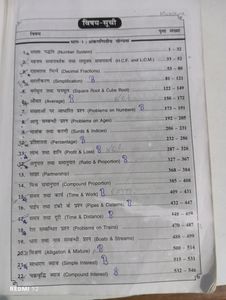 विषय-सूची
विषय
पृष्ठ संख्या
भाग-1 : अंकगणितीय योग्यता
1. संख्या पद्धति (Number System) 1 - 32
(H.C.F. and L.C.M.) 33 - 52
3. दशमलव भिन्नें (Decimal Fractions) 53 - 80
4. सरलीकरण (Simplification) 81 - 121
5. वर्गमूल तथा घनमूल (Square Root & Cube Root) 122 - 149
6. औसत (Average) 150 - 172
7. संख्याओं पर आधारित प्रश्न (Problems on Numbers) 173 - 191
8. आयु सम्बन्धी प्रश्न (Problems on Ages) 192 - 205
9. घातांक तथा करणी (Surds & Indices) 206 -
10. प्रतिशतता (Percentage)
11. लाभ तथा हानि (Profit & Loss)
12. अनुपात तथा समानुपात (Ratio & Proportion) 327 - 367
13. साझा (Partnership) 368 - 384
14. मिश्र समानुपात (Compound Proportion) 385 - 408
15. समय तथा कार्य (Time & Work) 409 - 431
16. पाईप तथा टंकी के प्रश्न (Pipes & Cisterns) 432 - 447
17. समय तथा दूरी (Time & Distance) 448 -
18. रेल सम्बन्धी प्रश्न (Problems on Trains) 470 - 487
19. धारा तथा नाव सम्बन्धी प्रश्न (Boats & Streams)
20. मिश्रण (Alligation & Mixture) 500 - 514
21. साधारण ब्याज (Simple Interest) 515 - 531
22. चक्रवृद्धि ब्याज (Compound Interest) 532 - 546
REDMI 12